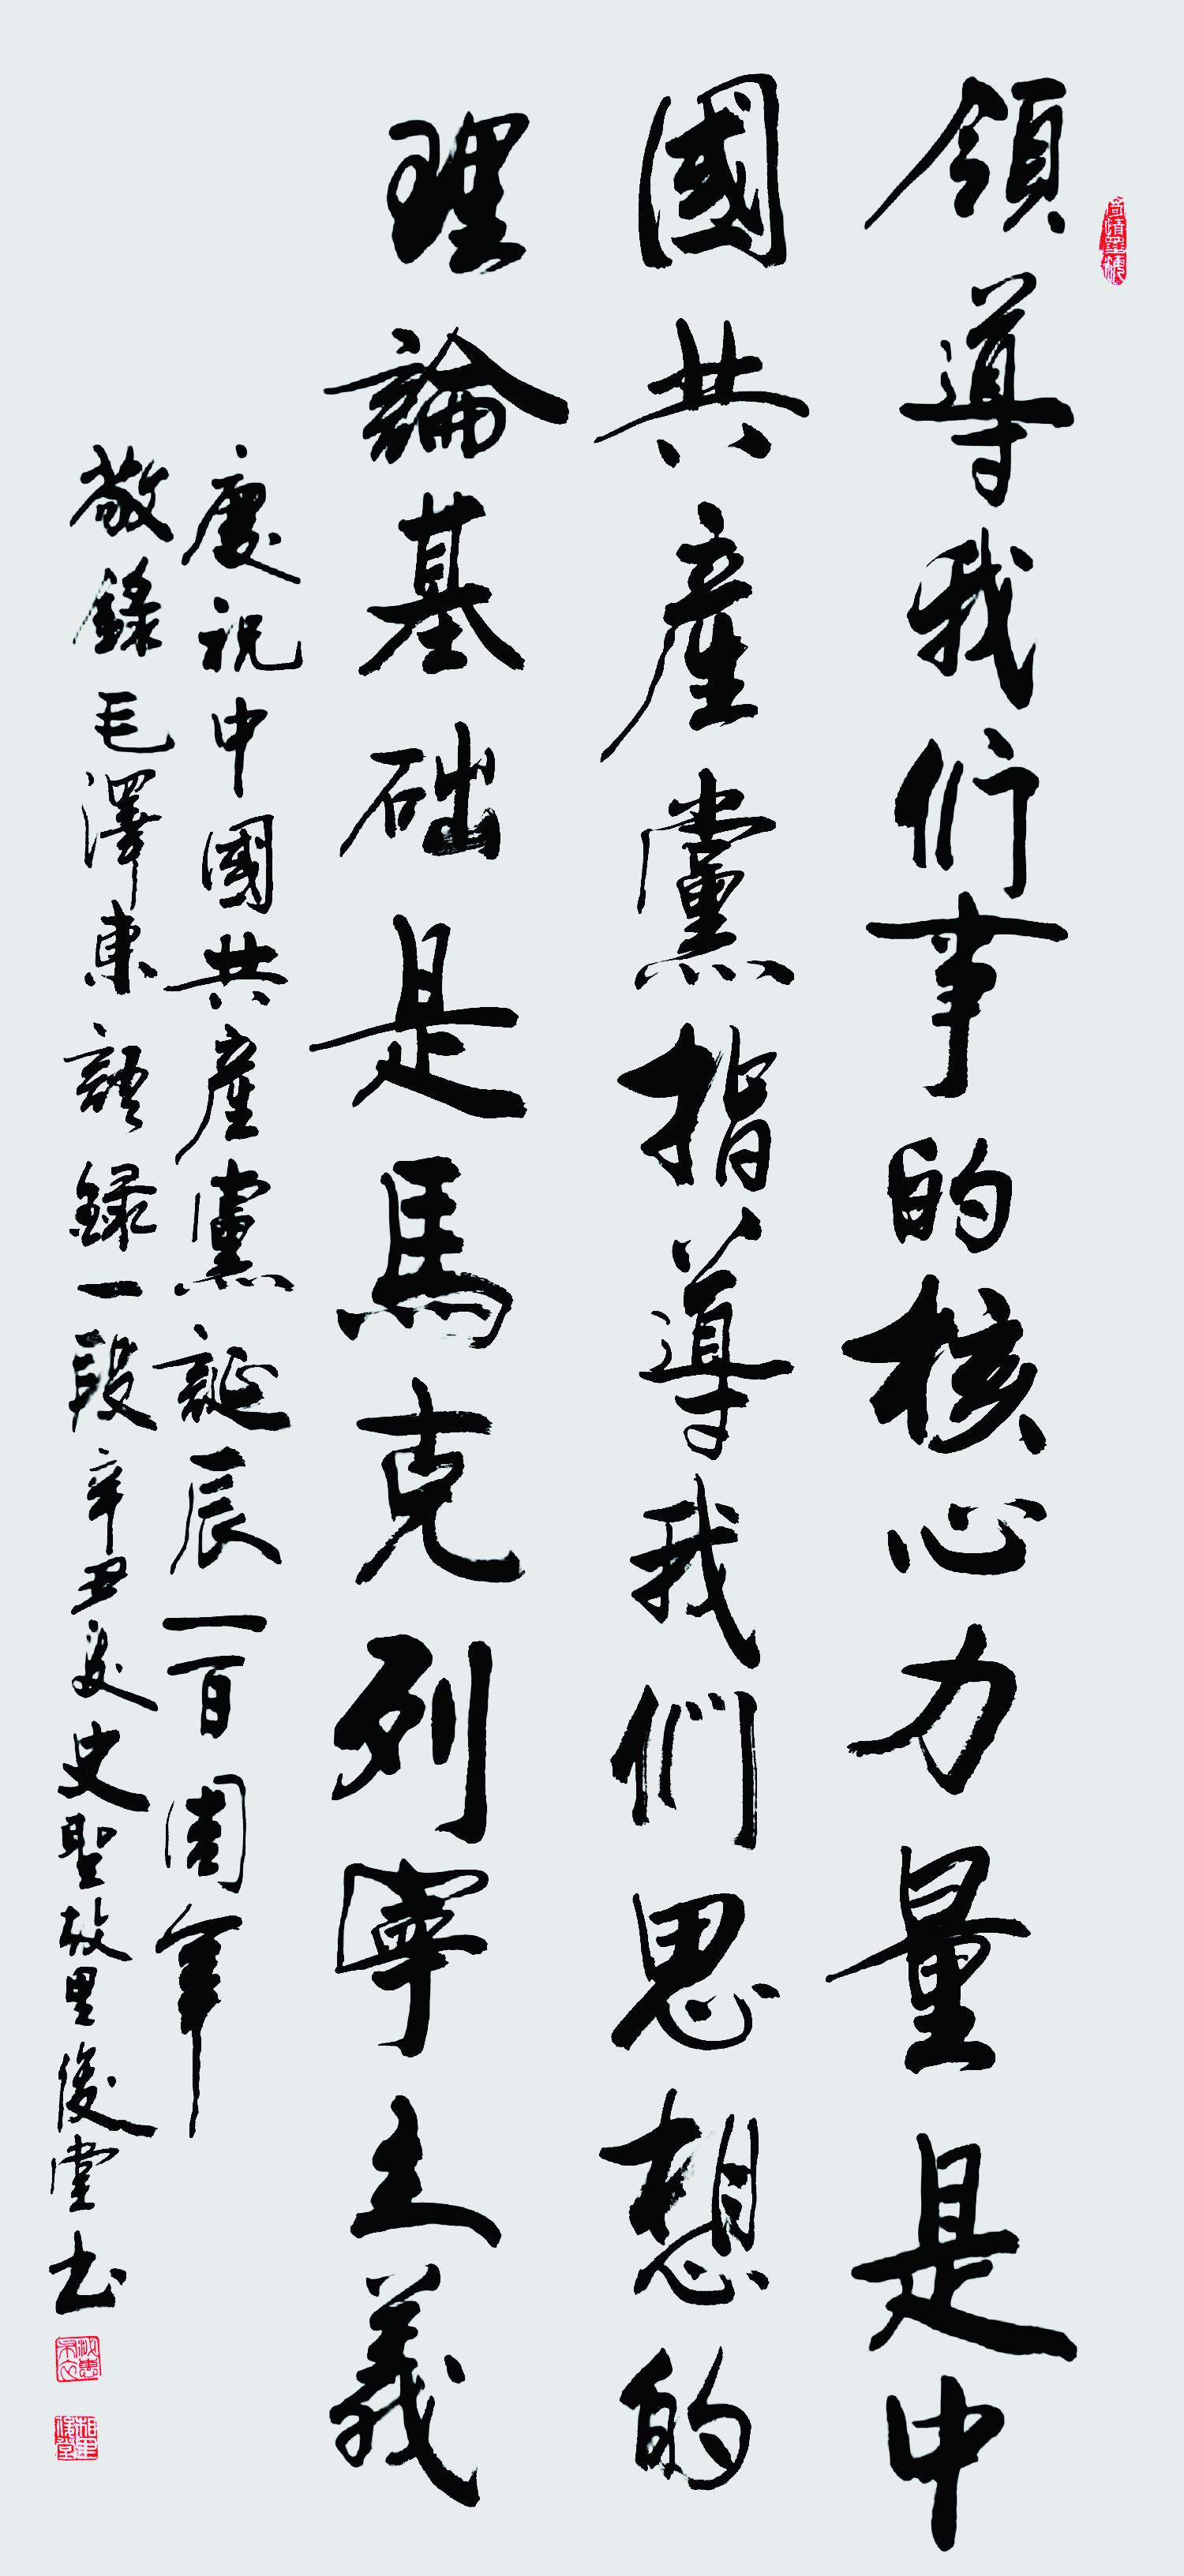 領導我们事的核心力量是中
國共産黨指導我們思想的
理論基础是馬克列寧主義
慶祝中國共産黨誕辰一百周年
敬錄毛澤東語録一段辛丑夏史聖故里俊堂书